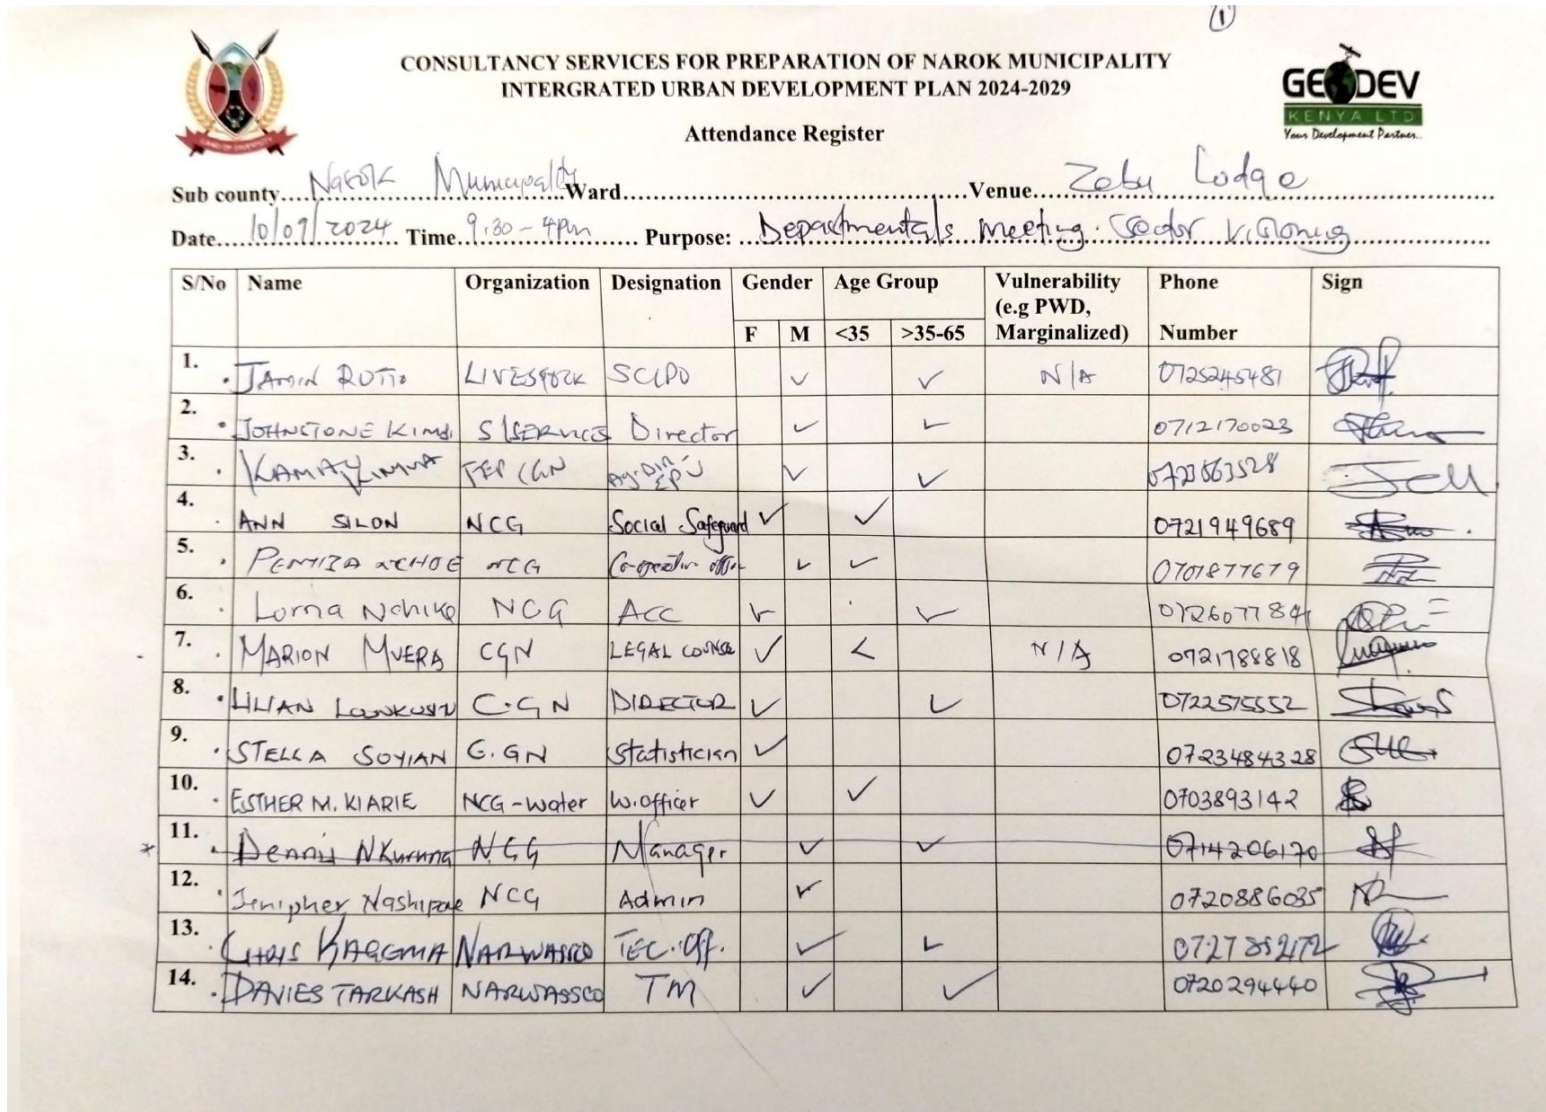 1
CONSULTANCY SERVICES FOR PREPARATION OF NAROK MUNICIPALITY
INTERGRATED URBAN DEVELOPMENT PLAN 2024-2029
GEODEV
KENYA LTD
Your Development Partner...
Attendance Register
Sub county....Narok Municipality Ward.................Venue....Zebu Lodge
Date....10/09/2024 Time..9:30 - 4pm Purpose: ..Departmentals meeting. Sector visioning
S/No Name Organization Designation Gender Age Group Vulnerability (e.g PWD, Marginalized) Phone Number Sign
F M <35 >35-65
1. RUTTO LIVESTOCK SCLPO ✓ ✓ N/A 0725245481
2. JOHNSTONE S/SERVICES Director ✓ ✓ 0712170023
3. ✓ ✓ 0723863528
4. ANN SILON NCG Social Safeguard ✓ ✓ 0721949689
5. NCG ✓ ✓ 0701877679
6. Lorna NCG ACC ✓ ✓
7. MARION MVERA CGN LEGAL COUNSEL ✓ < N/A 0721788818
8. LILIAN C.G N DIRECTOR ✓ ✓ 0722575552
9. STELLA SOYIAN C.GN Statistician ✓ 0723484328
10. ESTHER M. KIARIE NCG-Water W.officer ✓ ✓ 0703893142
* 11. Dennis NKuruna NCG Manager ✓ ✓ 0714206170
12. Jenipher Nashipae NCG Admin ✓ 0720886035
13. CHRIS NARWASSCO TEC. Off. ✓ ✓
14. DAVIES TARKASH NARWASSCO TM ✓ ✓ 0720294440